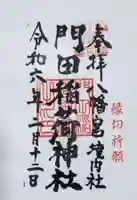 奉拝
八幡宮境内社
縁切祈願
門田稲荷神社
令和六年十一月十二日